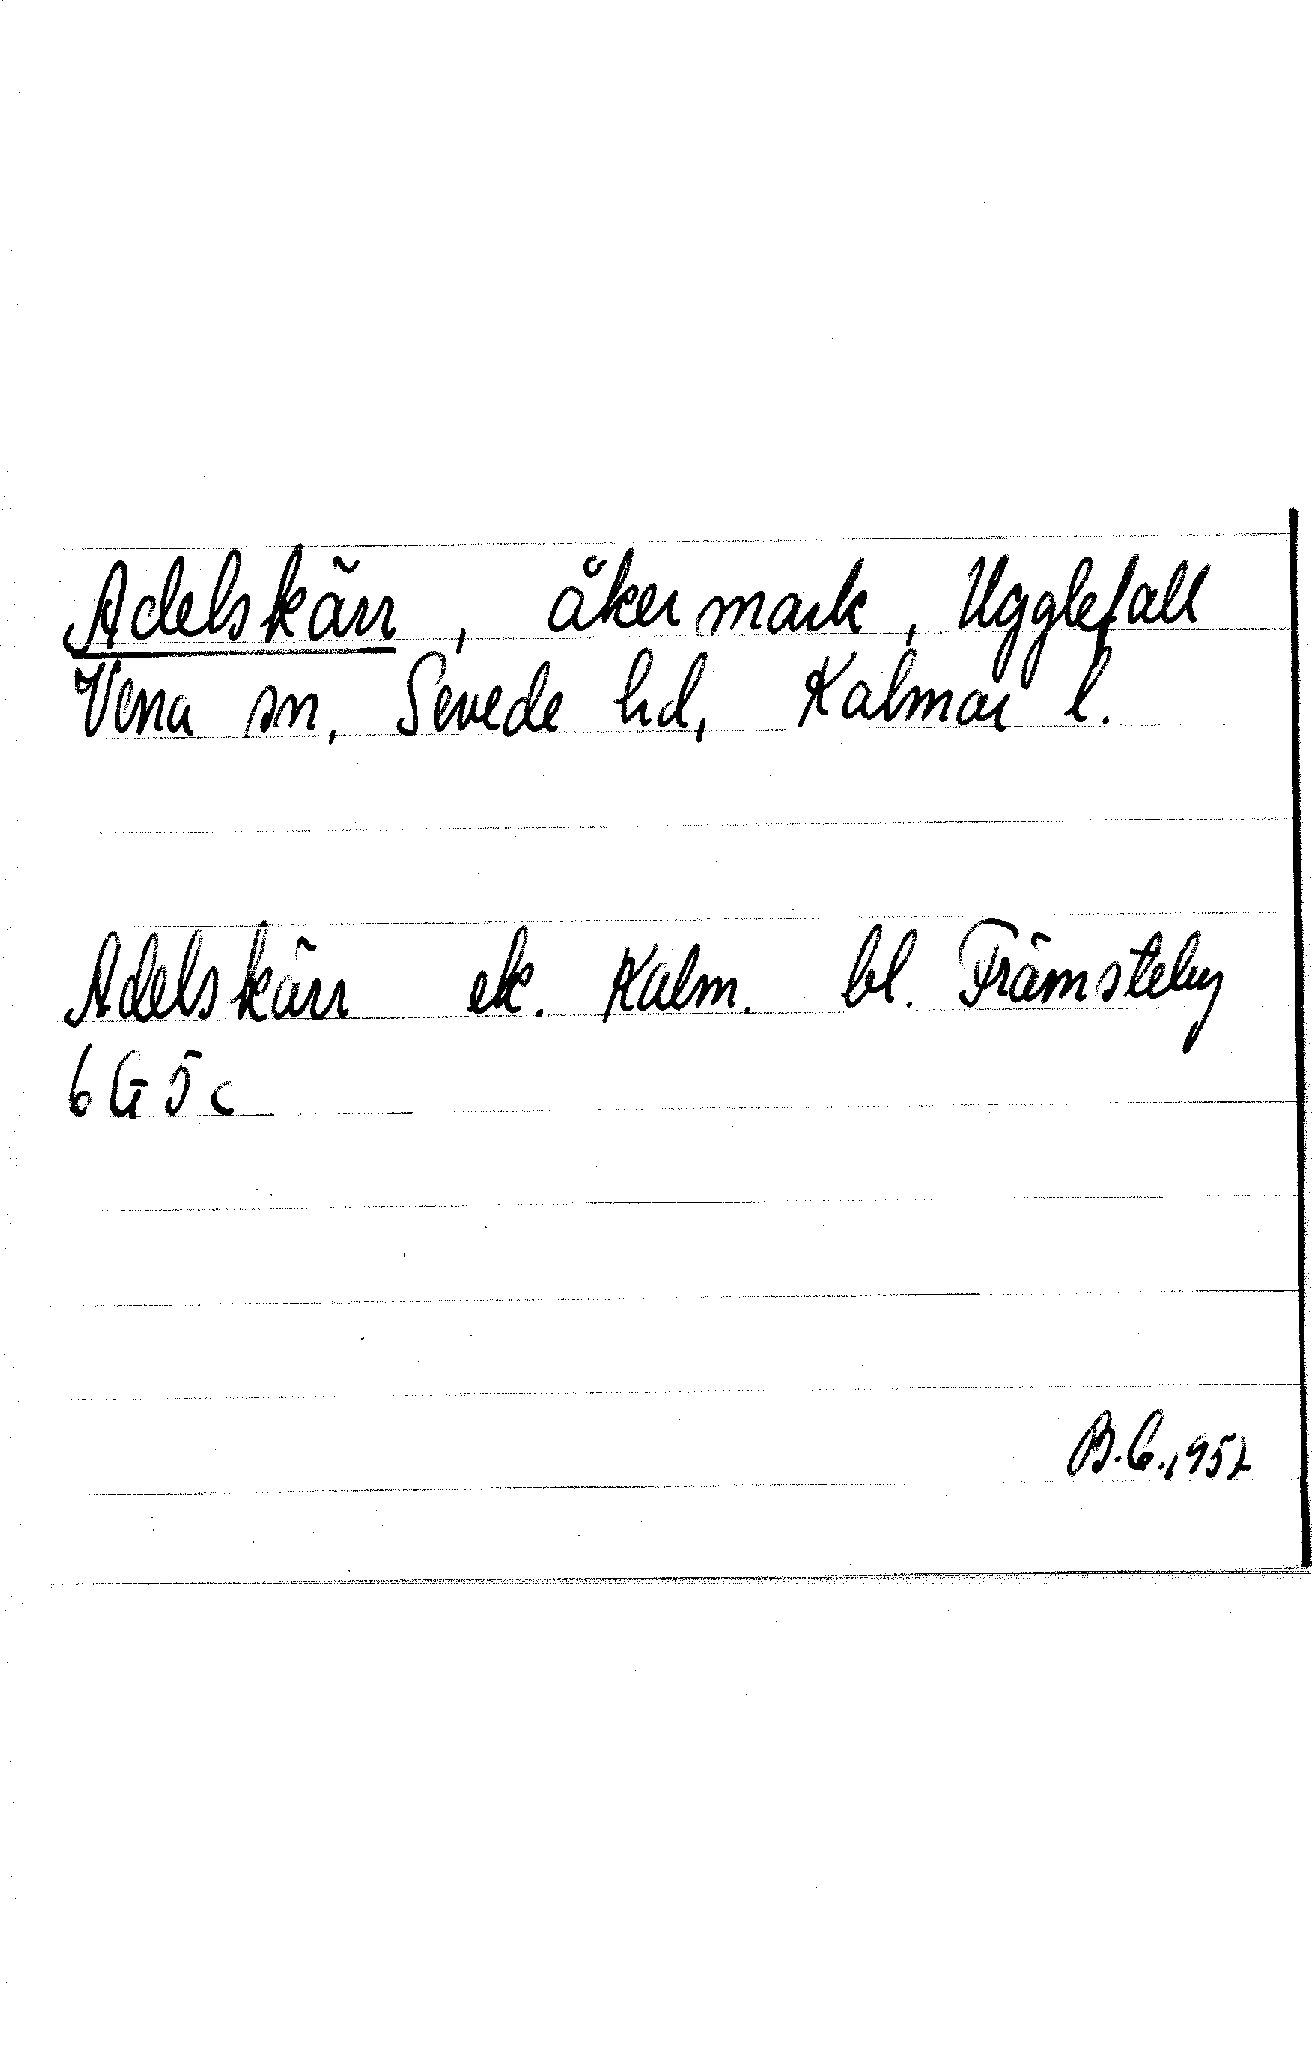 Adelskärr, åkermark, Ugglefall
Vena sn, Sevede hd, Kalmar l.
Adelskärr ek. Kalm. bl. Främsteby
6 G 5 c
B.C. 1952